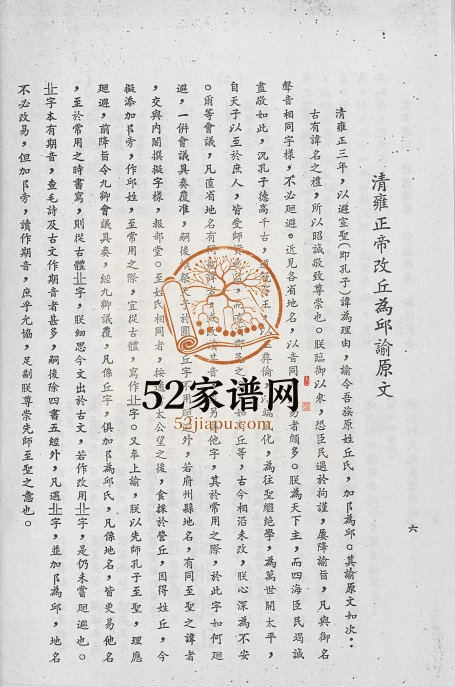 清雍正帝改丘為邱諭原文
清雍正三年，以避宣聖（即孔子）諱為理由，諭令吾族原姓丘氏，加阝為邱。其諭原文如次：
古有諱名之禮，所以昭誠敬致尊崇也。朕臨御以來，恐臣民過於拘謹，屢降諭旨，凡與御名
聲音相同字樣，不必廻避。近見各省地名，以音同 易者頗多。朕為天下主，而四海臣民竭誠
盡敬如此，況孔子德高千古，道 王 彝倫 化，為往聖繼絕學，為萬世開太平，
自天子以至於庶人，皆受師資 益 丘等，古今相沿未改，朕心深為不安
。爾等會議，凡直省地名有 他字，其於常用之際，於此字如何廻
避，一併會議具奏覆准，嗣後 祭天於圜丘 丘字不用 外，若府州縣地名，有同至聖之諱者
，交與內閣撰擬字樣，報部堂。至姓氏相同者，按 太公望之後，食採於營丘，因得姓丘，今
擬添加阝旁，作邱姓，至常用之際，宜從古體，寫作丠字。又奉上諭，朕以先師孔子至聖，理應
廻避，前降旨令九卿會議具奏，經九卿議覆，凡係丘字，俱加阝為邱氏，凡係地名，皆更易他名
，至於常用之時書寫，則從古體丠字，朕細思今文出於古文，若作改用丠字，是仍未嘗廻避也。
丠字本有期音，查毛詩及古文作期音者甚多，嗣後除四書五經外，凡遇丠字，並加阝為邱，地名
不必改易，但加阝旁，讀作期音，庶乎允協，足副朕尊崇先師至聖之意也。
六
52家谱网
52jiapu.com